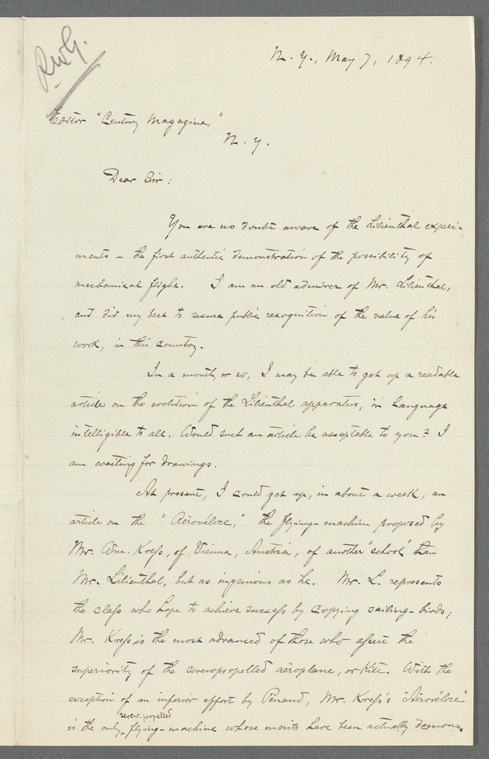 R.W.G.
N. Y., May 7, 1894.
Editor "Century Magazine,"
N. Y.
Dear Sir:
You are no doubt aware of the Lilienthal experi-
ments – the first authentic demonstration of the possibility of
mechanical flight. I am an old admirer of Mr. Lilienthal,
and did my best to secure public recognition of the value of his
work, in this country.
In a month, or so, I may be able to get up a readable
article on the evolution of the Lilienthal apparatus, in language
intelligible to all. Would such an article be acceptable to you? I
am waiting for drawings.
At present, I could get up, in about a week, an
article on the "Aérovéloce," the flying-machine, proposed by
Mr. Wm. Kress, of Vienna, Austria, of another "school" than
Mr. Lilienthal, but as ingenious as he. Mr. L. represents
the class who hope to achieve success by copying sailing-birds;
Mr. Kress is the most advanced of those who assert the
superiority of the screwpropelled aëroplane, or Kite. With the
exception of an inferior effort by Penaud, Mr. Kress's "Aérovéloce"
screw-propelled
is the only flying-machine whose merits have been actually demon-